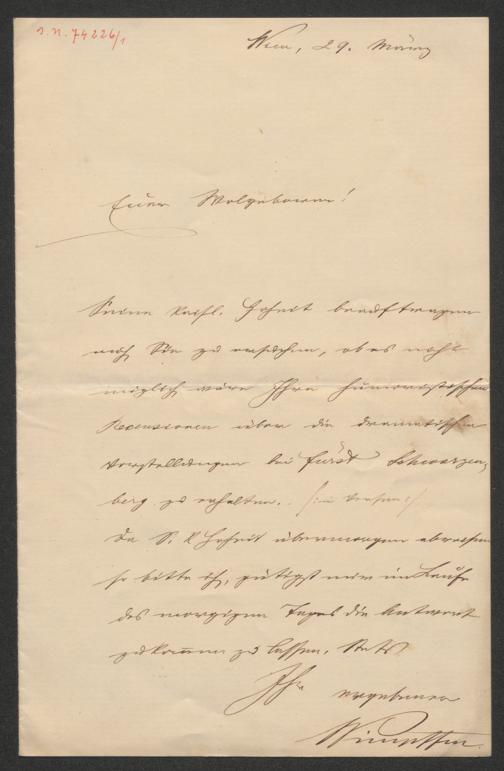 J. N. 74226/1
Wien, 29. März
Euer Wolgeboren!
Seine kaisl. Hoheit beauftragen
mich Sie zu ersuchen, ob es nicht
möglich wäre Ihre humoristischen
Recensionen über die dramatischen
Vorstellungen bei Fürst Schwarzen-
berg zu erhalten. (: in Versen :)
Da S. k Hoheit übermorgen abreisen
so bitte ich, gütigst mir im Laufe
des morgigen Tages die Antwort
zukommen zu lassen. Stets
Ihr ergebener
Wimpffen